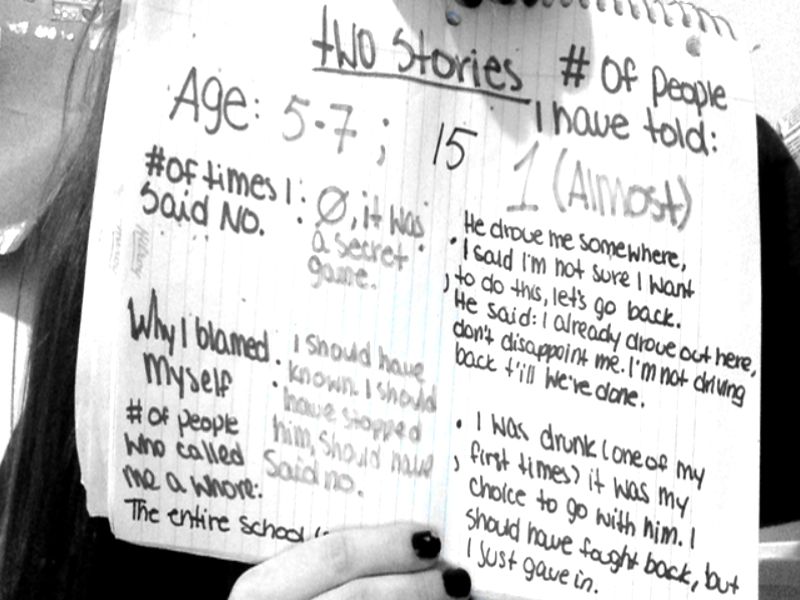 two Stories
# of people
I have told:
Age: 5-7; 15
1 (Almost)
# of times I
Said NO.
: Ø, it was
a secret
game.
Why I blamed
Myself
. I should have
. known. I should
have stopped
him, should have
Said no.
# of people
who called
me a whore:
The entire school
He drove me somewhere,
• I said I'm not sure I want
, to do this, let's go back.
He said: I already drove out here,
don't disappoint me. I'm not driving
back t'ill we're done.
• I was drunk (one of my
, first times) it was my
choice to go with him. I
should have faught back, but
I just gave in.